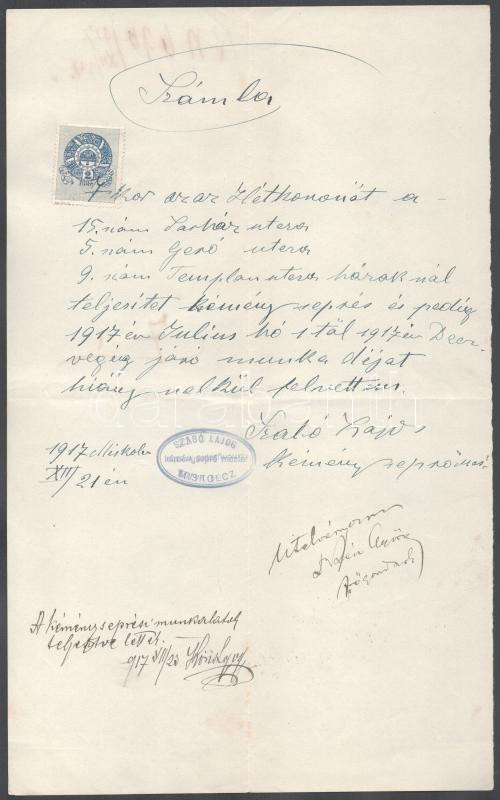 Számla
7 kor azaz Hétkoronát a
15. szám utca
5. szám Gerő utcza
9. szám Templom utcza házaknál
teljesitet kémény seprés és pedig
1917 év Julius hó 1től 1917 év Decz.
végéig járó munka dijat
hiány nélkül felvettem.
Szabó Lajos
kémény seprőmes.
1917 Miskolcz
XII/21 én
SZABÓ LAJOS
KÉMÉNYSEPRŐ MESTER
MISKOLCZ
Utalványozom
A kéményseprési munkálatok
teljesitve lettek.
917 XII/23